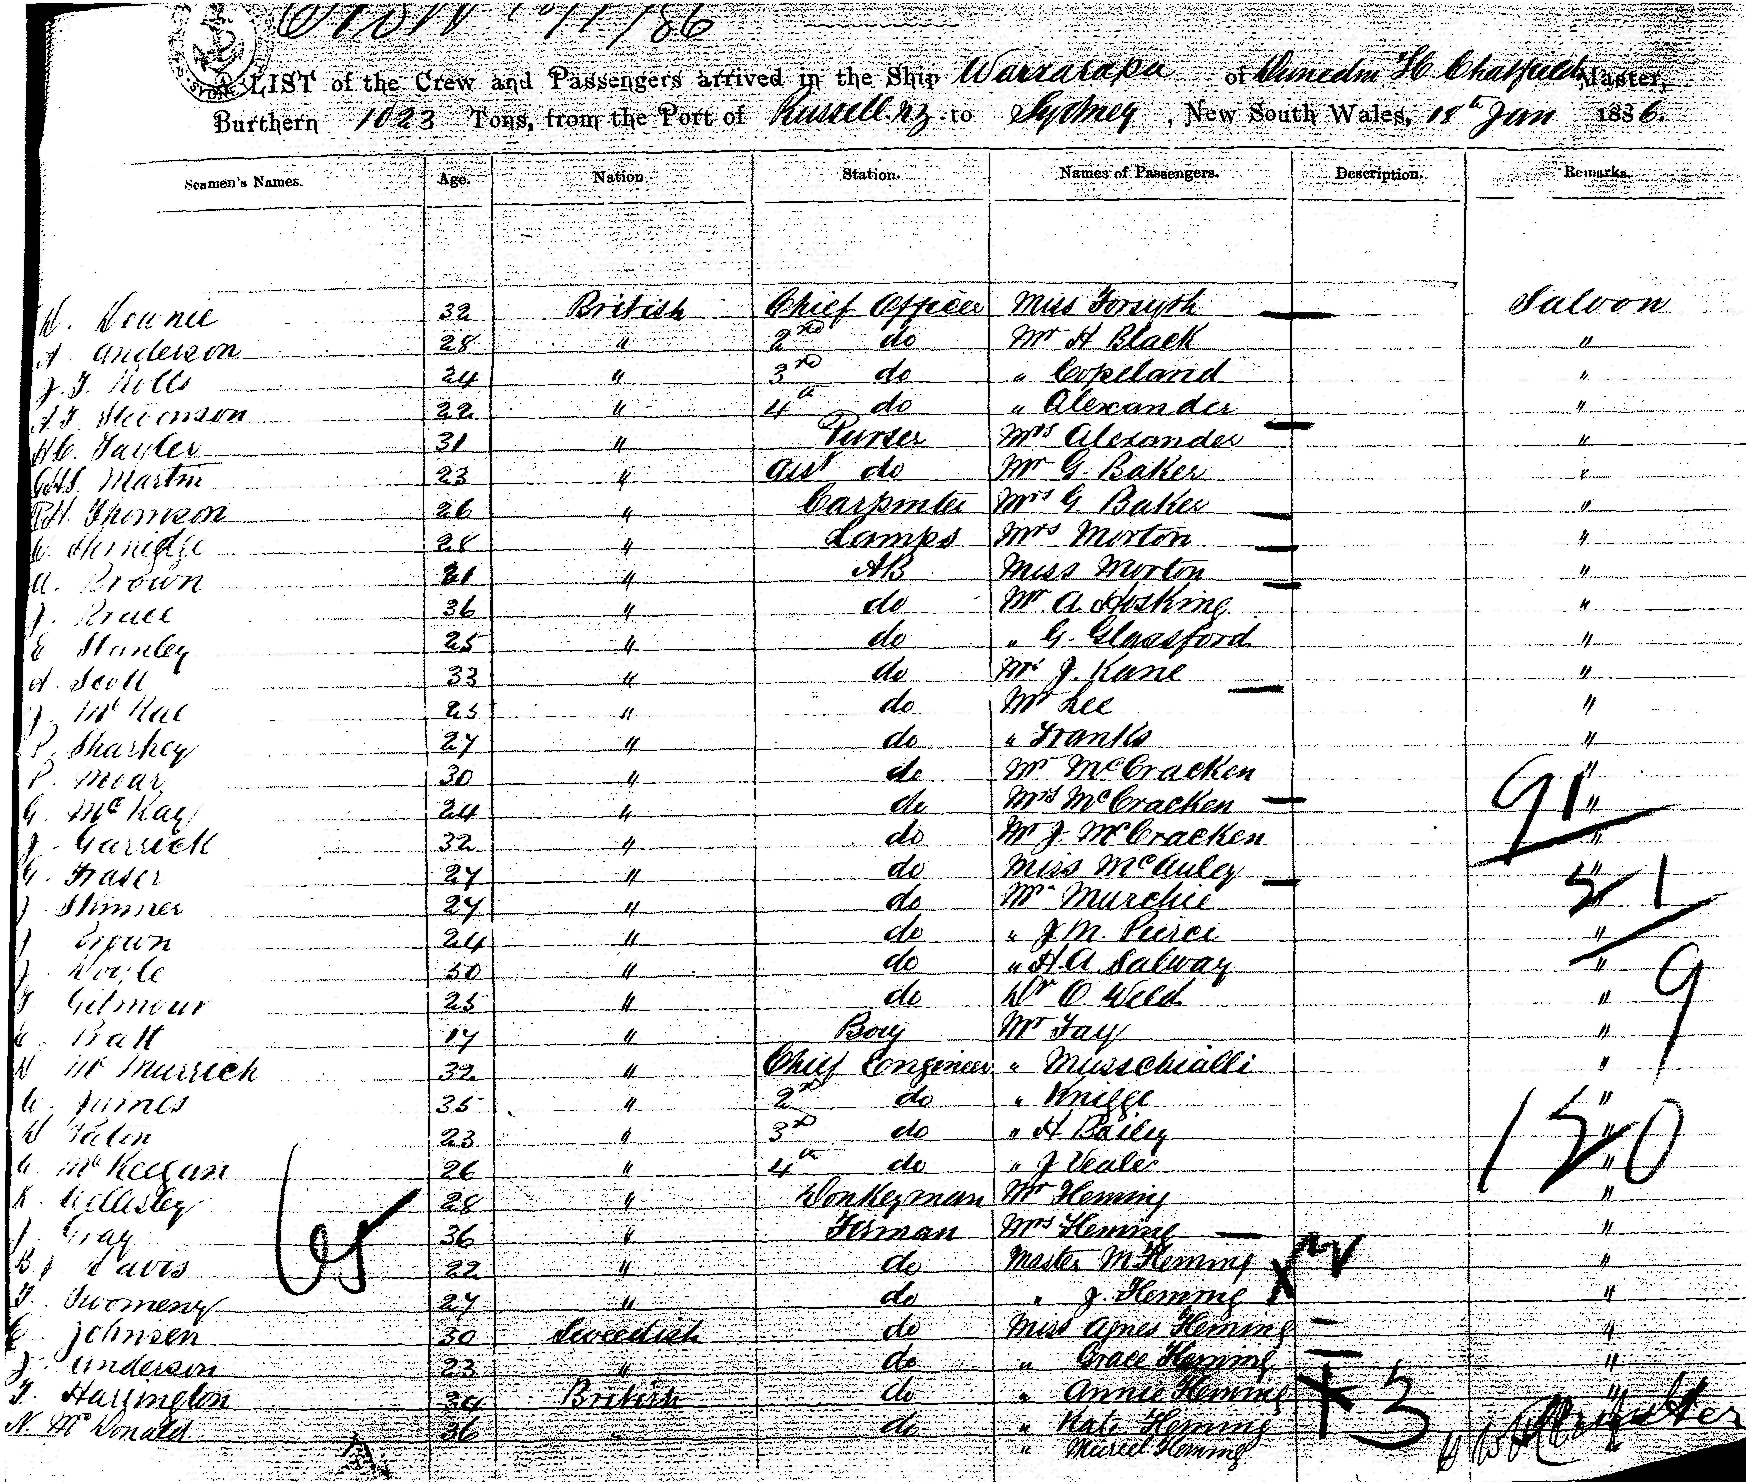 LIST of the Crew and Passengers arrived in the Ship Warrarapa of Dunedin H Chatfield Master,
Burthern 1023 Tons, from the Port of Russell. NZ to Sydney, New South Wales, 18th Jan 1886.
Seamen's Names. Age. Nation. Station. Names of Passengers. Description. Remarks.
32 British Chief Officer Miss Forsyth Saloon
A. Anderson 28 " 2nd do Mr H Black "
24 " 3rd do " Copeland "
22 " 4th do " Alexander "
Tayler 31 " Purser Mrs Alexander "
Martin 23 " Asst do Mr G. Baker "
Thomson 26 " Carpenter Mrs G Baker "
28 " Lamps Mrs Morton "
A. Brown 21 " AB Miss Morton "
J. 36 " do Mr A Hosking "
Stanley 25 " do " G. Glassford "
A. Scott 33 " do J. Kane "
J. McRae 25 " do Mr Lee "
P. Sharkey 27 " do " Franks "
P. Moar 30 " do Mr McCracken "
G. McKay 24 " do Mrs McCracken " 91
J. Garrick 32 " do Mr J. McCracken "
G. Fraser 27 " do Miss McAuley "
J. Skinner 27 " do Mr Murchie " 51
J. Brown 24 " do " J. M. Pierci "
J. Doyle 50 " do " H. A. Salway "
Gilmour 25 " do Dr O Weld " 9
Batt 17 " Boy Mr Fay "
McMurrich 32 " Chief Engineer " Musschialli "
James 35 " 2nd do " Knigge "
23 " 3rd do " H Bailey " 150
McKeegan 26 " 4th do " J Veale "
Wellesley 28 " Donkeyman Mr Heming "
J. Gray 36 " Firman Mrs Heming "
65
Davis 22 " do Master M Heming "
T. Twomeny 27 " do " J. Heming "
Johnsen 30 Sweedish do Miss Agnes Heming "
J. Anderson 23 " do " Grace Heming "
T. Harrington 34 British do " Annie Heming "
N. McDonald 36 do " Kate Heming
+3
" Muriel Heming